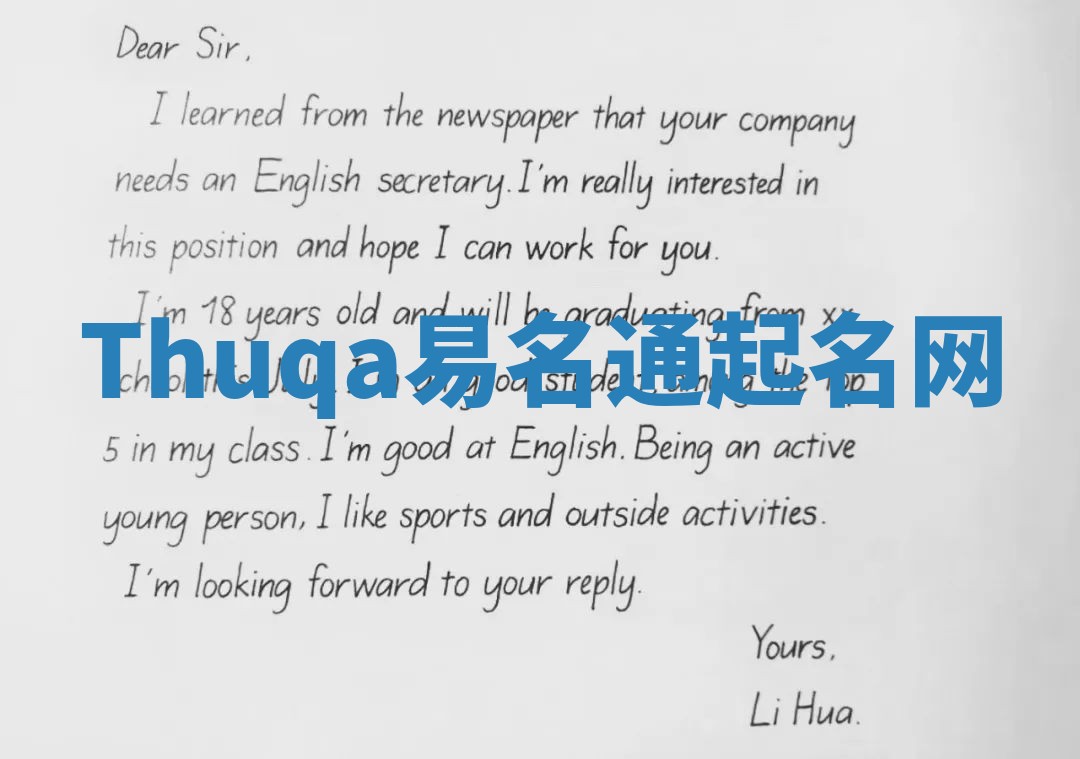 Dear Sir,
I learned from the newspaper that your company
needs an English secretary. I'm really interested in
this position and hope I can work for you.
I'm 18 years old and will be graduating from xx
Thuqa易名通起名网
school this July. I'm a good student, among the top
5 in my class. I'm good at English. Being an active
young person, I like sports and outside activities.
I'm looking forward to your reply.
Yours,
Li Hua.